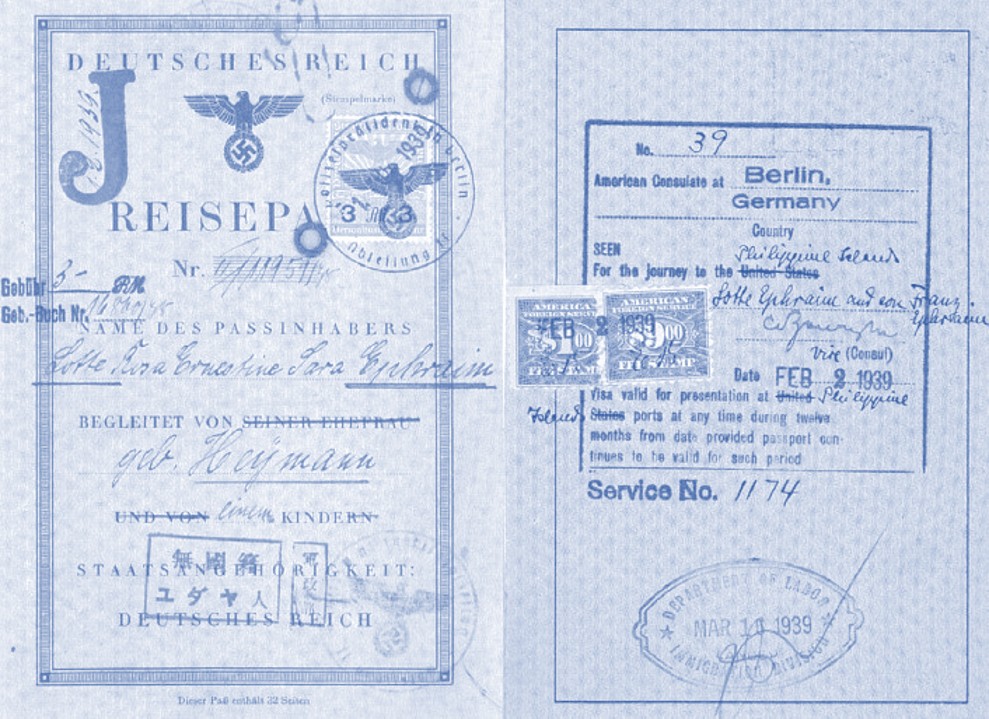 DEUTSCHES REICH
J
1939
(Stempelmarke)
Polizeipräsident in Berlin
1939
3 3
Abteilung II
REISEPA
Nr.
Gebühr 3- RM
Geb.-Buch Nr.
NAME DES PASSINHABERS
Lotte Rosa Ernestine Sara Ephraim
BEGLEITET VON SEINER EHEFRAU
geb. Heymann
UND VON einem KINDERN
無国籍
STAATSANGEHÖRIGKEIT:
ユダヤ人
DEUTSCHES REICH
Dieser Paß enthält 32 Seiten
No. 39
American Consulate at Berlin,
Germany
Country
SEEN Philippine Islands
For the journey to the United States
Lotte Ephraim and son Franz Ephraim
Vice (Consul)
AMERICAN
FOREIGN SERVICE
$1 00
FEE STAMP
AMERICAN
FOREIGN SERVICE
$9 00
FEE STAMP
FEB 2 1939
Date FEB 2 1939
Visa valid for presentation at United Philippine
Islands States ports at any time during twelve
months from date provided passport con-
tinues to be valid for such period
Service No. 1174
DEPARTMENT OF LABOR
MAR 16 1939
IMMIGRATION DIVISION